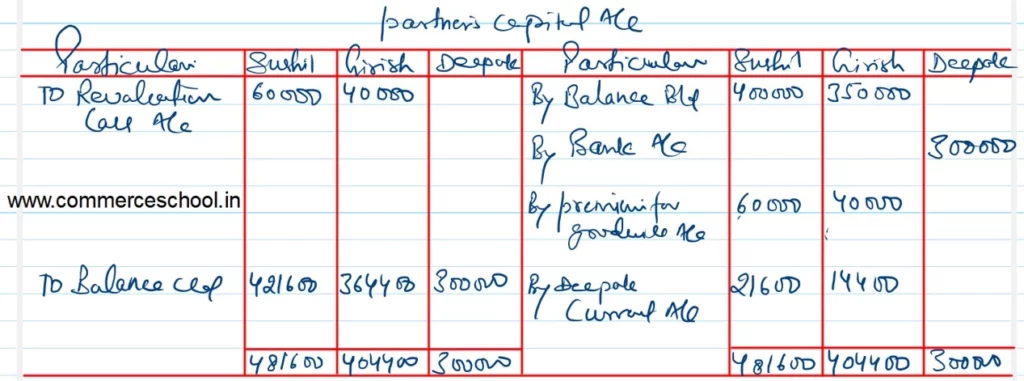 partner's capital A/c
Particulars Sushil Girish Deepak Particulars Sushil Girish Deepak
To Revaluation 60000 40000 By Balance B/d 400000 350000
Loss A/c
By Bank A/c 300000
www.commerceschool.in
By premium for 60000 40000
goodwill A/c
To Balance c/d 421600 364400 300000 By Deepak 21600 14400
Current A/c
481600 404400 300000 481600 404400 300000